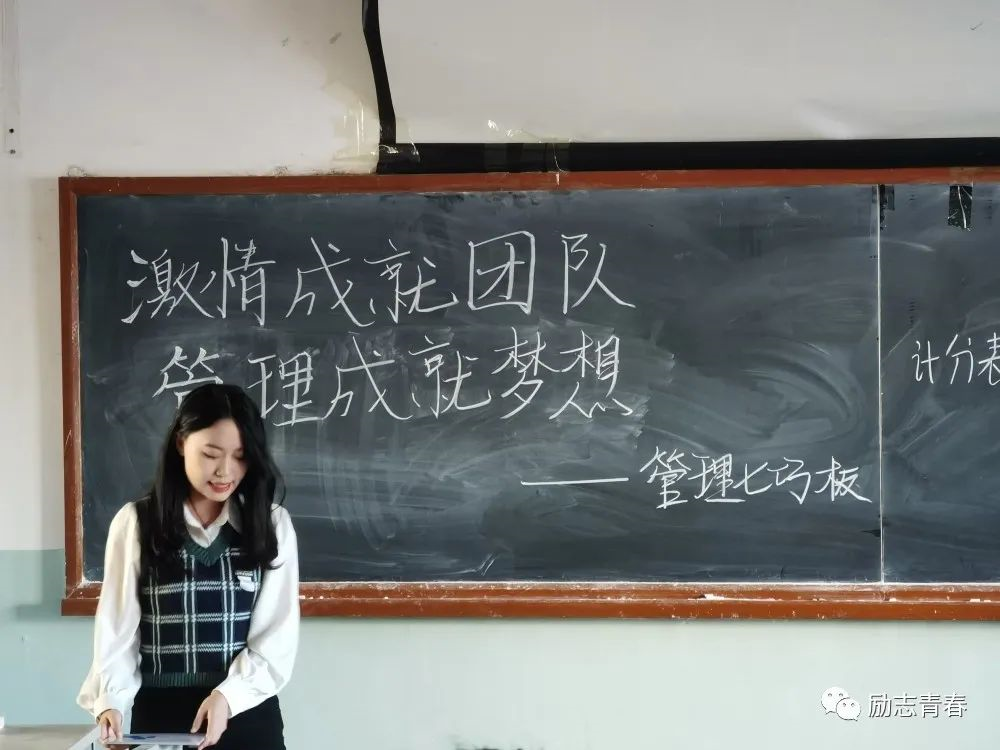 激情成就团队
管理成就梦想
——管理七巧板
计分表
励志青春